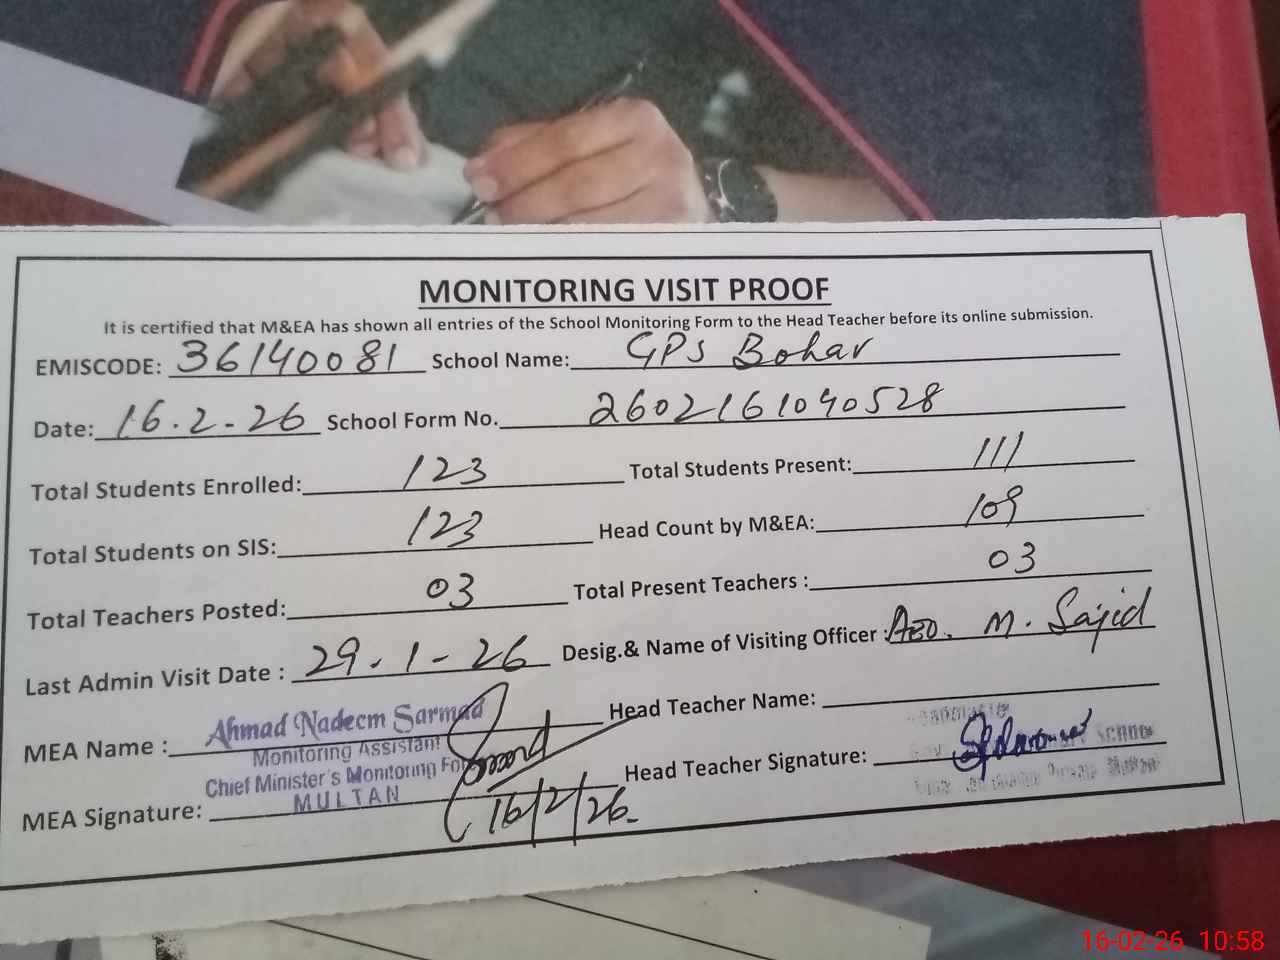 MONITORING VISIT PROOF
It is certified that M&EA has shown all entries of the School Monitoring Form to the Head Teacher before its online submission.
EMISCODE: 36140081 School Name: GPS Bohar
Date: 16.2-26 School Form No. 2602161040528
Total Students Enrolled: 123 Total Students Present: 111
Total Students on SIS: 123 Head Count by M&EA: 109
Total Teachers Posted: 03 Total Present Teachers : 03
Last Admin Visit Date : 29-1-26 Desig.& Name of Visiting Officer : AEO. M. Sajid
MEA Name : Ahmad Nadeem Sarmad Head Teacher Name:
Monitoring Assistant
Chief Minister's Monitoring
MULTAN
MEA Signature: 16/2/26 Head Teacher Signature:
School
16-02-26 10:58